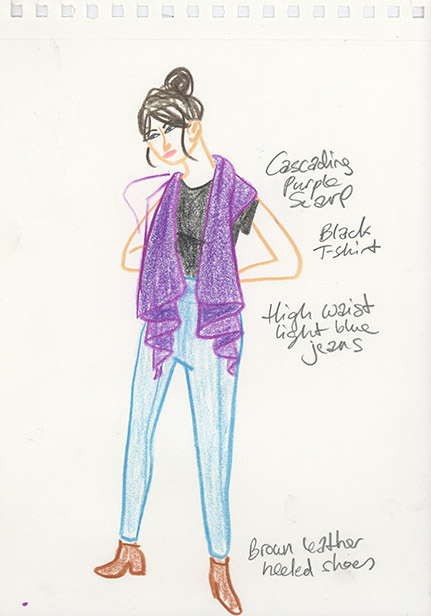 Cascading
Purple
Scarf
Black
T-shirt
High waist
light blue
jeans
Brown leather
heeled shoes